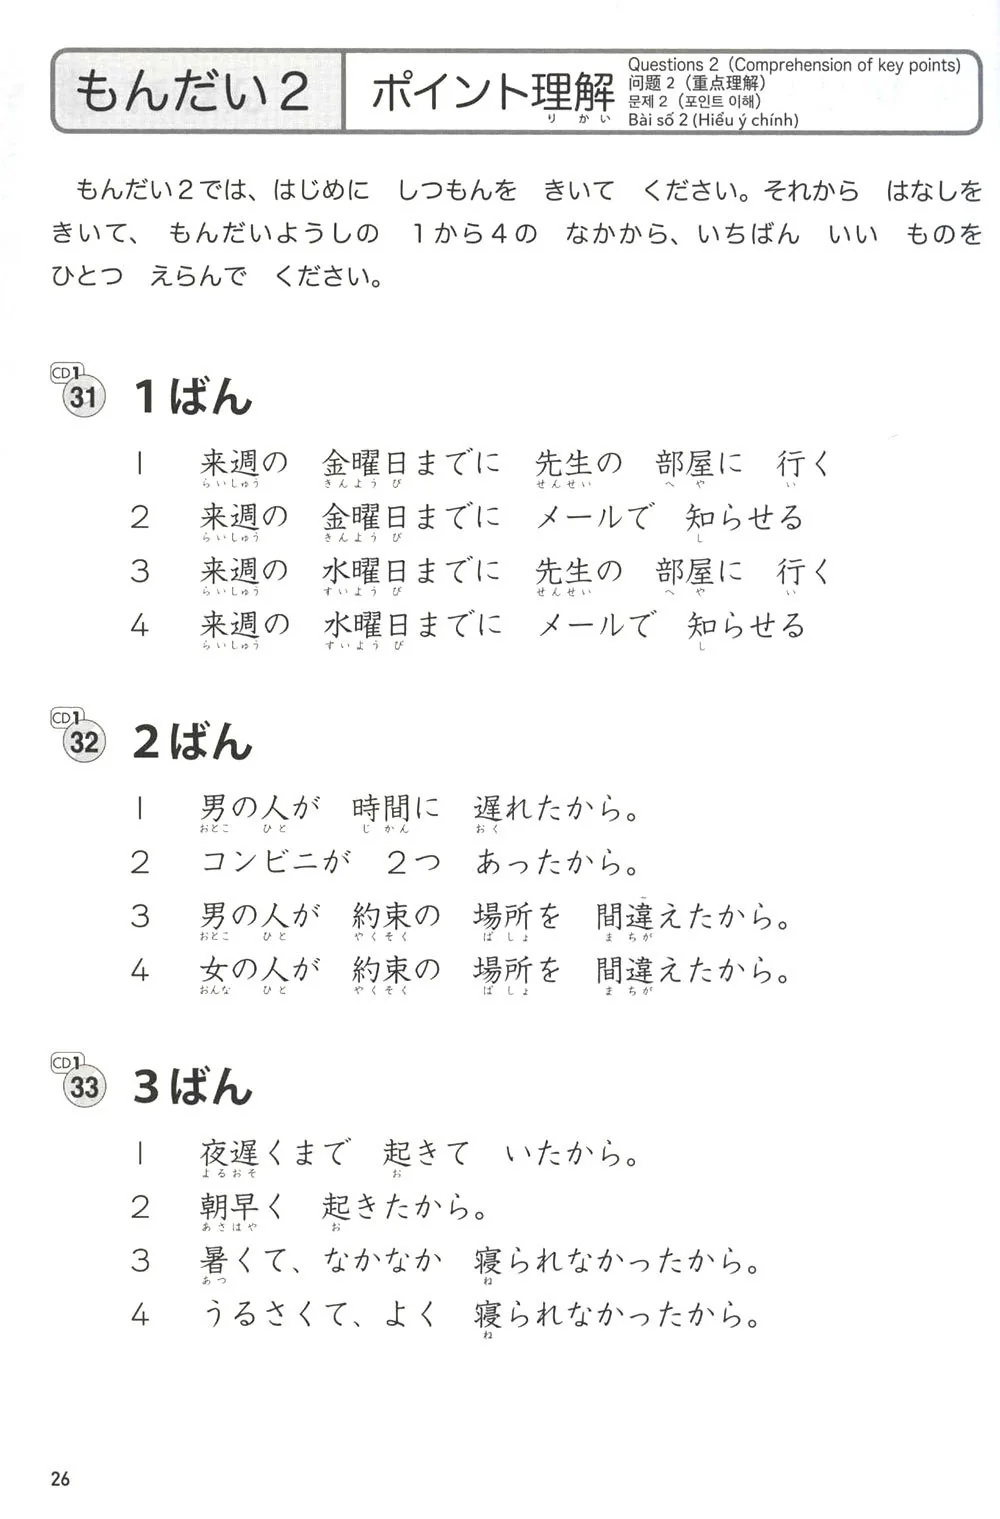 もんだい２
ポイント理解
りかい
Questions 2（Comprehension of key points)
问题 2（重点理解）
문제 2（포인트 이해）
Bài số 2 (Hiểu ý chính)
もんだい２では、はじめに　しつもんを　きいて　ください。それから　はなしを
きいて、　もんだいようしの　１から４の　なかから、いちばん　いい　ものを
ひとつ　えらんで　ください。
CD1
31
１ばん
1　来週の　金曜日までに　先生の　部屋に　行く
らいしゅう　きんようび　せんせい　へや　い
2　来週の　金曜日までに　メールで　知らせる
らいしゅう　きんようび　し
3　来週の　水曜日までに　先生の　部屋に　行く
らいしゅう　すいようび　せんせい　へや　い
4　来週の　水曜日までに　メールで　知らせる
らいしゅう　すいようび　し
CD1
32
２ばん
1　男の人が　時間に　遅れたから。
おとこ　ひと　じかん　おく
2　コンビニが　２つ　あったから。
3　男の人が　約束の　場所を　間違えたから。
おとこ　ひと　やくそく　ばしょ　まちが
4　女の人が　約束の　場所を　間違えたから。
おんな　ひと　やくそく　ばしょ　まちが
CD1
33
３ばん
1　夜遅くまで　起きて　いたから。
よるおそ　お
2　朝早く　起きたから。
あさはや　お
3　暑くて、なかなか　寝られなかったから。
あつ　ね
4　うるさくて、よく　寝られなかったから。
ね
26